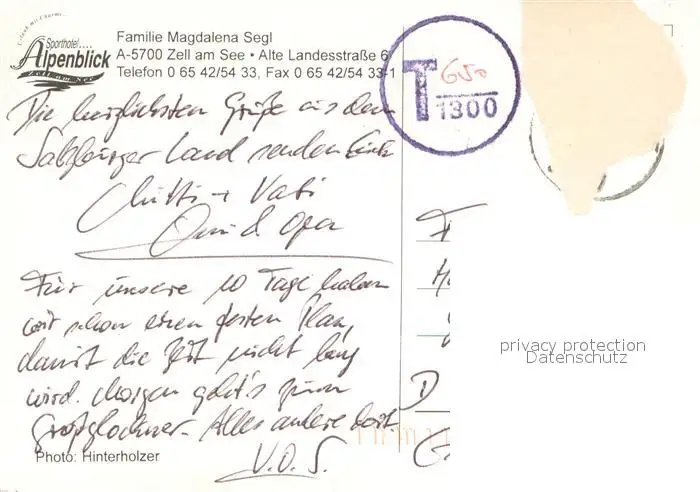 Urlaub mit Charme..
Sporthotel....
Alpenblick
Zell am See
Familie Magdalena Segl
A-5700 Zell am See • Alte Landesstraße 6
Telefon 0 65 42/54 33, Fax 0 65 42/54 33-1
T 650
1300
Die herzlichsten Grüße aus dem
Salzburger Land senden Euch
Mutti + Vati
Omi d. Opa
Für unsere 10 Tage haben
wir schon einen festen Plan,
damit die Zeit nicht lang
wird. Morgen geht's zum
Großglockner. Alles andere dort.
V.O.S.
Photo: Hinterholzer
D
privacy protection
Datenschutz